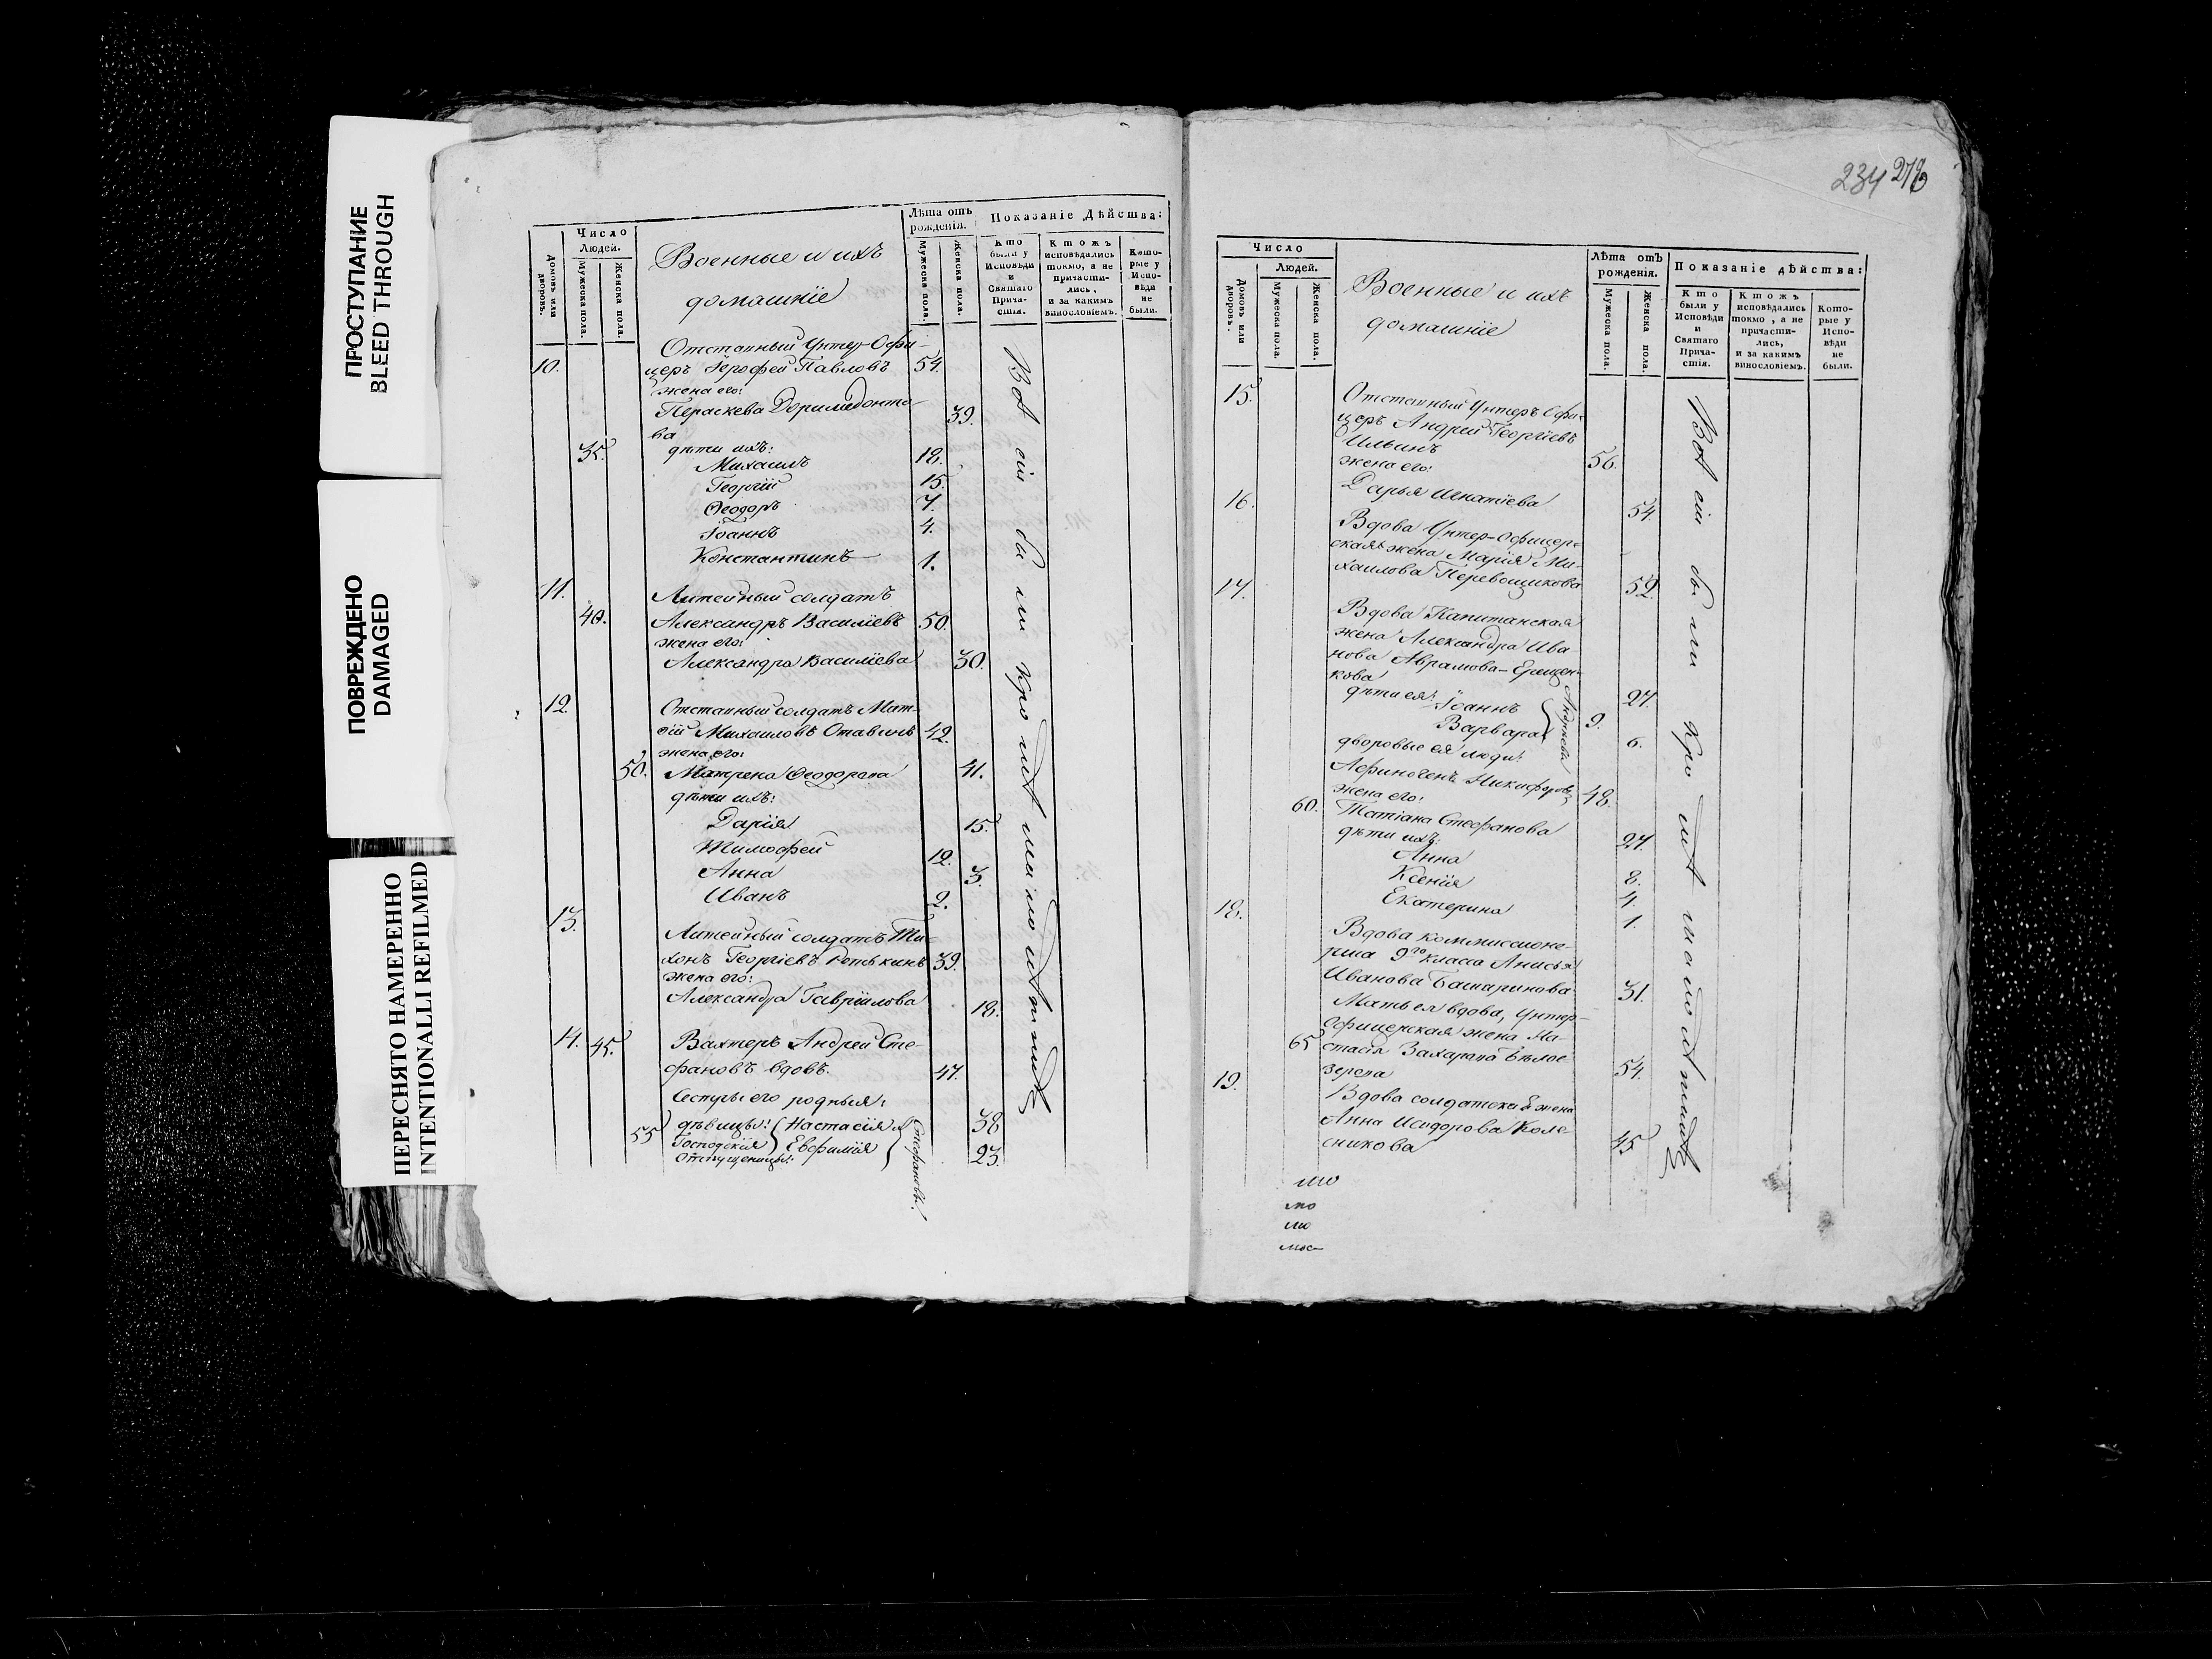 ПРОСТУПАНИЕ
BLEED THROUGH
ПОВРЕЖДЕНО
DAMAGED
ПЕРЕСНЯТО НАМЕРЕННО
INTENTIONALLI REFILMED
Домовъ или дворовъ.
Число
Людей.
Мужеска пола.
Женска пола.
Военные и ихъ
домашніе
Лѣта отъ
рожденія.
Мужеска пола.
Женска пола.
Показаніе Дѣйства:
Кто
были у
Исповѣди
и
Святаго
Прича-
стія.
Ктожъ
исповѣдались
токмо, а не
причасти-
лись,
и за какимъ
винословіемъ.
Кото-
рые у
Испо-
вѣди
не
были.
Отставный Унтер-Офи-
10. церъ Іерофей Павловъ 54.
жена его:
Параскева Доримедонто- 39.
ва
35. дѣти ихъ:
Михаилъ 18.
Георгій 15.
Ѳеодоръ 7.
Іоаннъ 4.
Константинъ 1.
11. Литейный солдатъ
40. Александръ Василіевъ 50.
жена его:
Александра Василіева 30.
12. Отставный солдатъ Мат-
ѳій Михаиловъ 42.
жена его:
50. Матрена Ѳеодорова 41.
дѣти ихъ:
Дарія 15.
Тимофей 12.
Анна 3.
Иванъ 2.
13. Литейный солдатъ Ти-
хонъ Георгіевъ 39.
жена его:
Александра Гавріилова 18.
14. 45. Вахтеръ Андрей Сте-
фановъ вдовъ. 47.
Сестры его родныя:
55 дѣвицы: Настасія 38
Господскія Евфимія 23.
Отпущеницы:
Стефановы.
Всѣ сіи были
234 276
Число
Домовъ или дворовъ.
Людей.
Мужеска пола.
Женска пола.
Военные и ихъ
домашніе
Лѣта отъ
рожденія.
Мужеска пола.
Женска пола.
Показаніе дѣйства:
Кто
были у
Исповѣди
и
Святаго
Прича-
стія.
Ктожъ
исповѣдались
токмо, а не
причасти-
лись,
и за какимъ
винословіемъ.
Кото-
рые у
Испо-
вѣди
не
были.
15. Отставный Унтеръ Офи-
церъ Андрей Георгіевъ
Ильинъ 56.
жена его:
Дарья Игнатіева 54.
16. Вдова Унтер-Офицер-
ская жена Марія Ми-
хаилова Перевощикова 52.
17. Вдова Капитанская
жена Александра Ива-
нова Аврамова-Ерещен-
кова 27.
дѣти ея: Іоаннъ 9.
Варвара 6.
Андреевы
дворовые ея люди:
Афиногенъ Никифоровъ 48.
жена его:
60. Татіана Стефанова 27
дѣти ихъ:
Анна 8.
Ксенія 4.
Екатерина 1.
18. Вдова коммиссионе-
рша 9го класса Анисья
Иванова Башаринова 31.
Мать ея вдова, Унтер-
офицерская жена На-
65 стасія Захарова Бѣлое-
зерева 54.
19. Вдова солдатска жена
Анна Исидорова Коле-
сникова 45
Всѣ сіи были